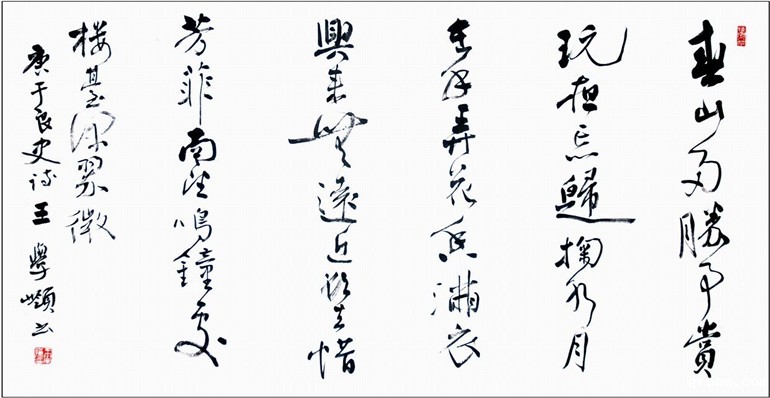 春山多勝事賞
玩夜忘歸掬水月
在手弄花香滿衣
興來無遠近欲去惜
芳菲南望鳴鐘處
樓臺深翠微
唐于良史詩王學嶺书